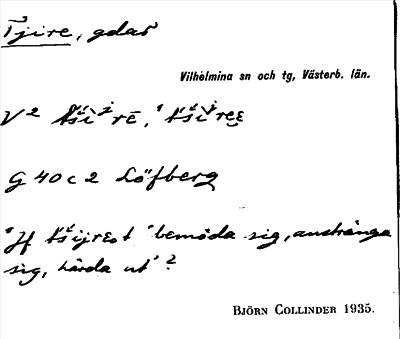 Tjire, gdaß
Vilhelmina sn och tg, Västerb. län.
V2 tši̇̀rē, tši̇̀ree
G 40 c 2 Löfberg
"Jf tšijret 'bemöda sig, anstränga
sig, härda ut'?
BJÖRN COLLINDER 1935.